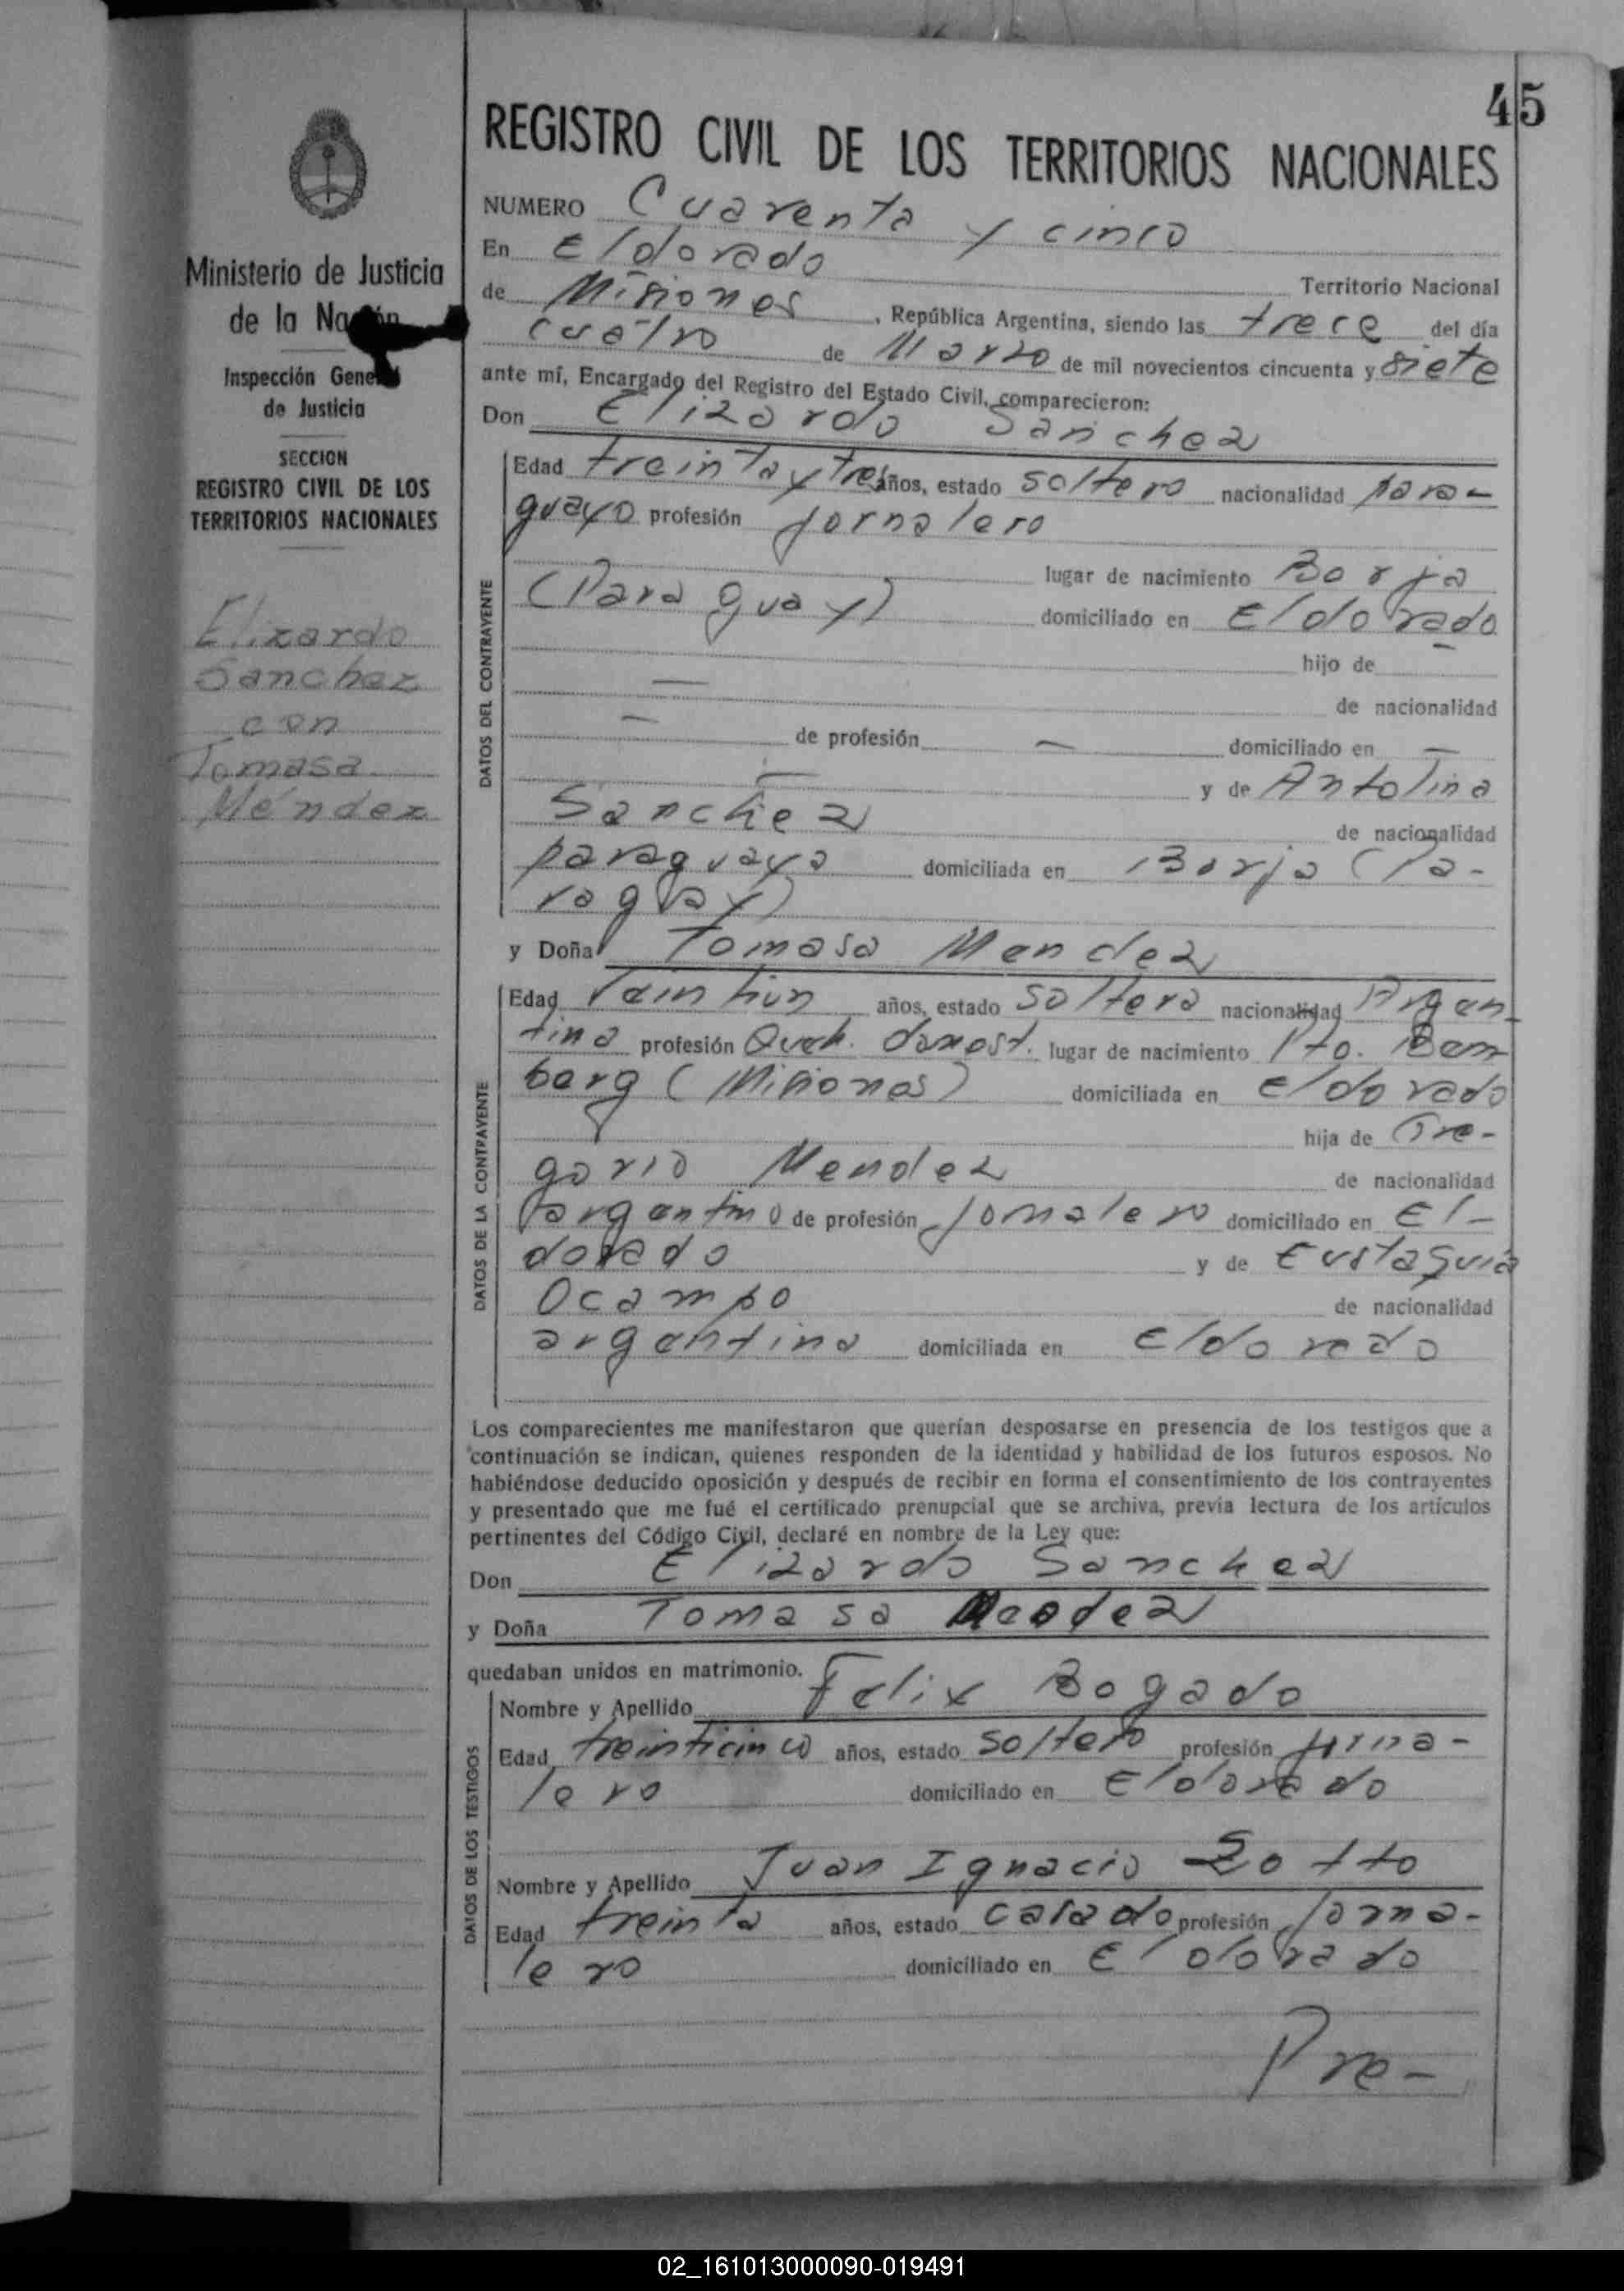 45
REGISTRO CIVIL DE LOS TERRITORIOS NACIONALES
Ministerio de Justicia
de la Nación
Inspección General
de Justicia
SECCION
REGISTRO CIVIL DE LOS
TERRITORIOS NACIONALES
Elizardo
Sanchez
con
Tomasa
Méndez
NUMERO Cuarenta y cinco
En Eldorado
Territorio Nacional
de Misiones, República Argentina, siendo las trece del día
cuatro de Marzo de mil novecientos cincuenta y siete
ante mí, Encargado del Registro del Estado Civil, comparecieron:
Don Elizardo Sanchez
DATOS DEL CONTRAYENTE
Edad treinta y tres años, estado soltero nacionalidad para-
guayo profesión jornalero
lugar de nacimiento Borja
(Paraguay) domiciliado en Eldorado
hijo de —
— de nacionalidad
— de profesión — domiciliado en —
— y de Antolina
Sanchez de nacionalidad
paraguaya domiciliada en Borja (Pa-
raguay)
y Doña Tomasa Mendez
DATOS DE LA CONTRAYENTE
Edad veintiun años, estado soltera nacionalidad Argen-
tina profesión Queh. domest. lugar de nacimiento Pto. Bem
berg (Misiones) domiciliada en Eldorado
hija de Gre-
gorio Mendez de nacionalidad
argentino de profesión jornalero domiciliado en El-
dorado y de Eustaquia
Ocampo de nacionalidad
argentina domiciliada en Eldorado
Los comparecientes me manifestaron que querían desposarse en presencia de los testigos que a
continuación se indican, quienes responden de la identidad y habilidad de los futuros esposos. No
habiéndose deducido oposición y después de recibir en forma el consentimiento de los contrayentes
y presentado que me fué el certificado prenupcial que se archiva, previa lectura de los artículos
pertinentes del Código Civil, declaré en nombre de la Ley que:
Don Elizardo Sanchez
y Doña Tomasa Mendez
quedaban unidos en matrimonio.
DATOS DE LOS TESTIGOS
Nombre y Apellido Felix Bogado
Edad treinticinco años, estado soltero profesión jorna-
lero domiciliado en Eldorado
Nombre y Apellido Juan Ignacio Sotto
Edad treinta años, estado casado profesión jorna-
lero domiciliado en Eldorado
Pre-
02_161013000090-019491